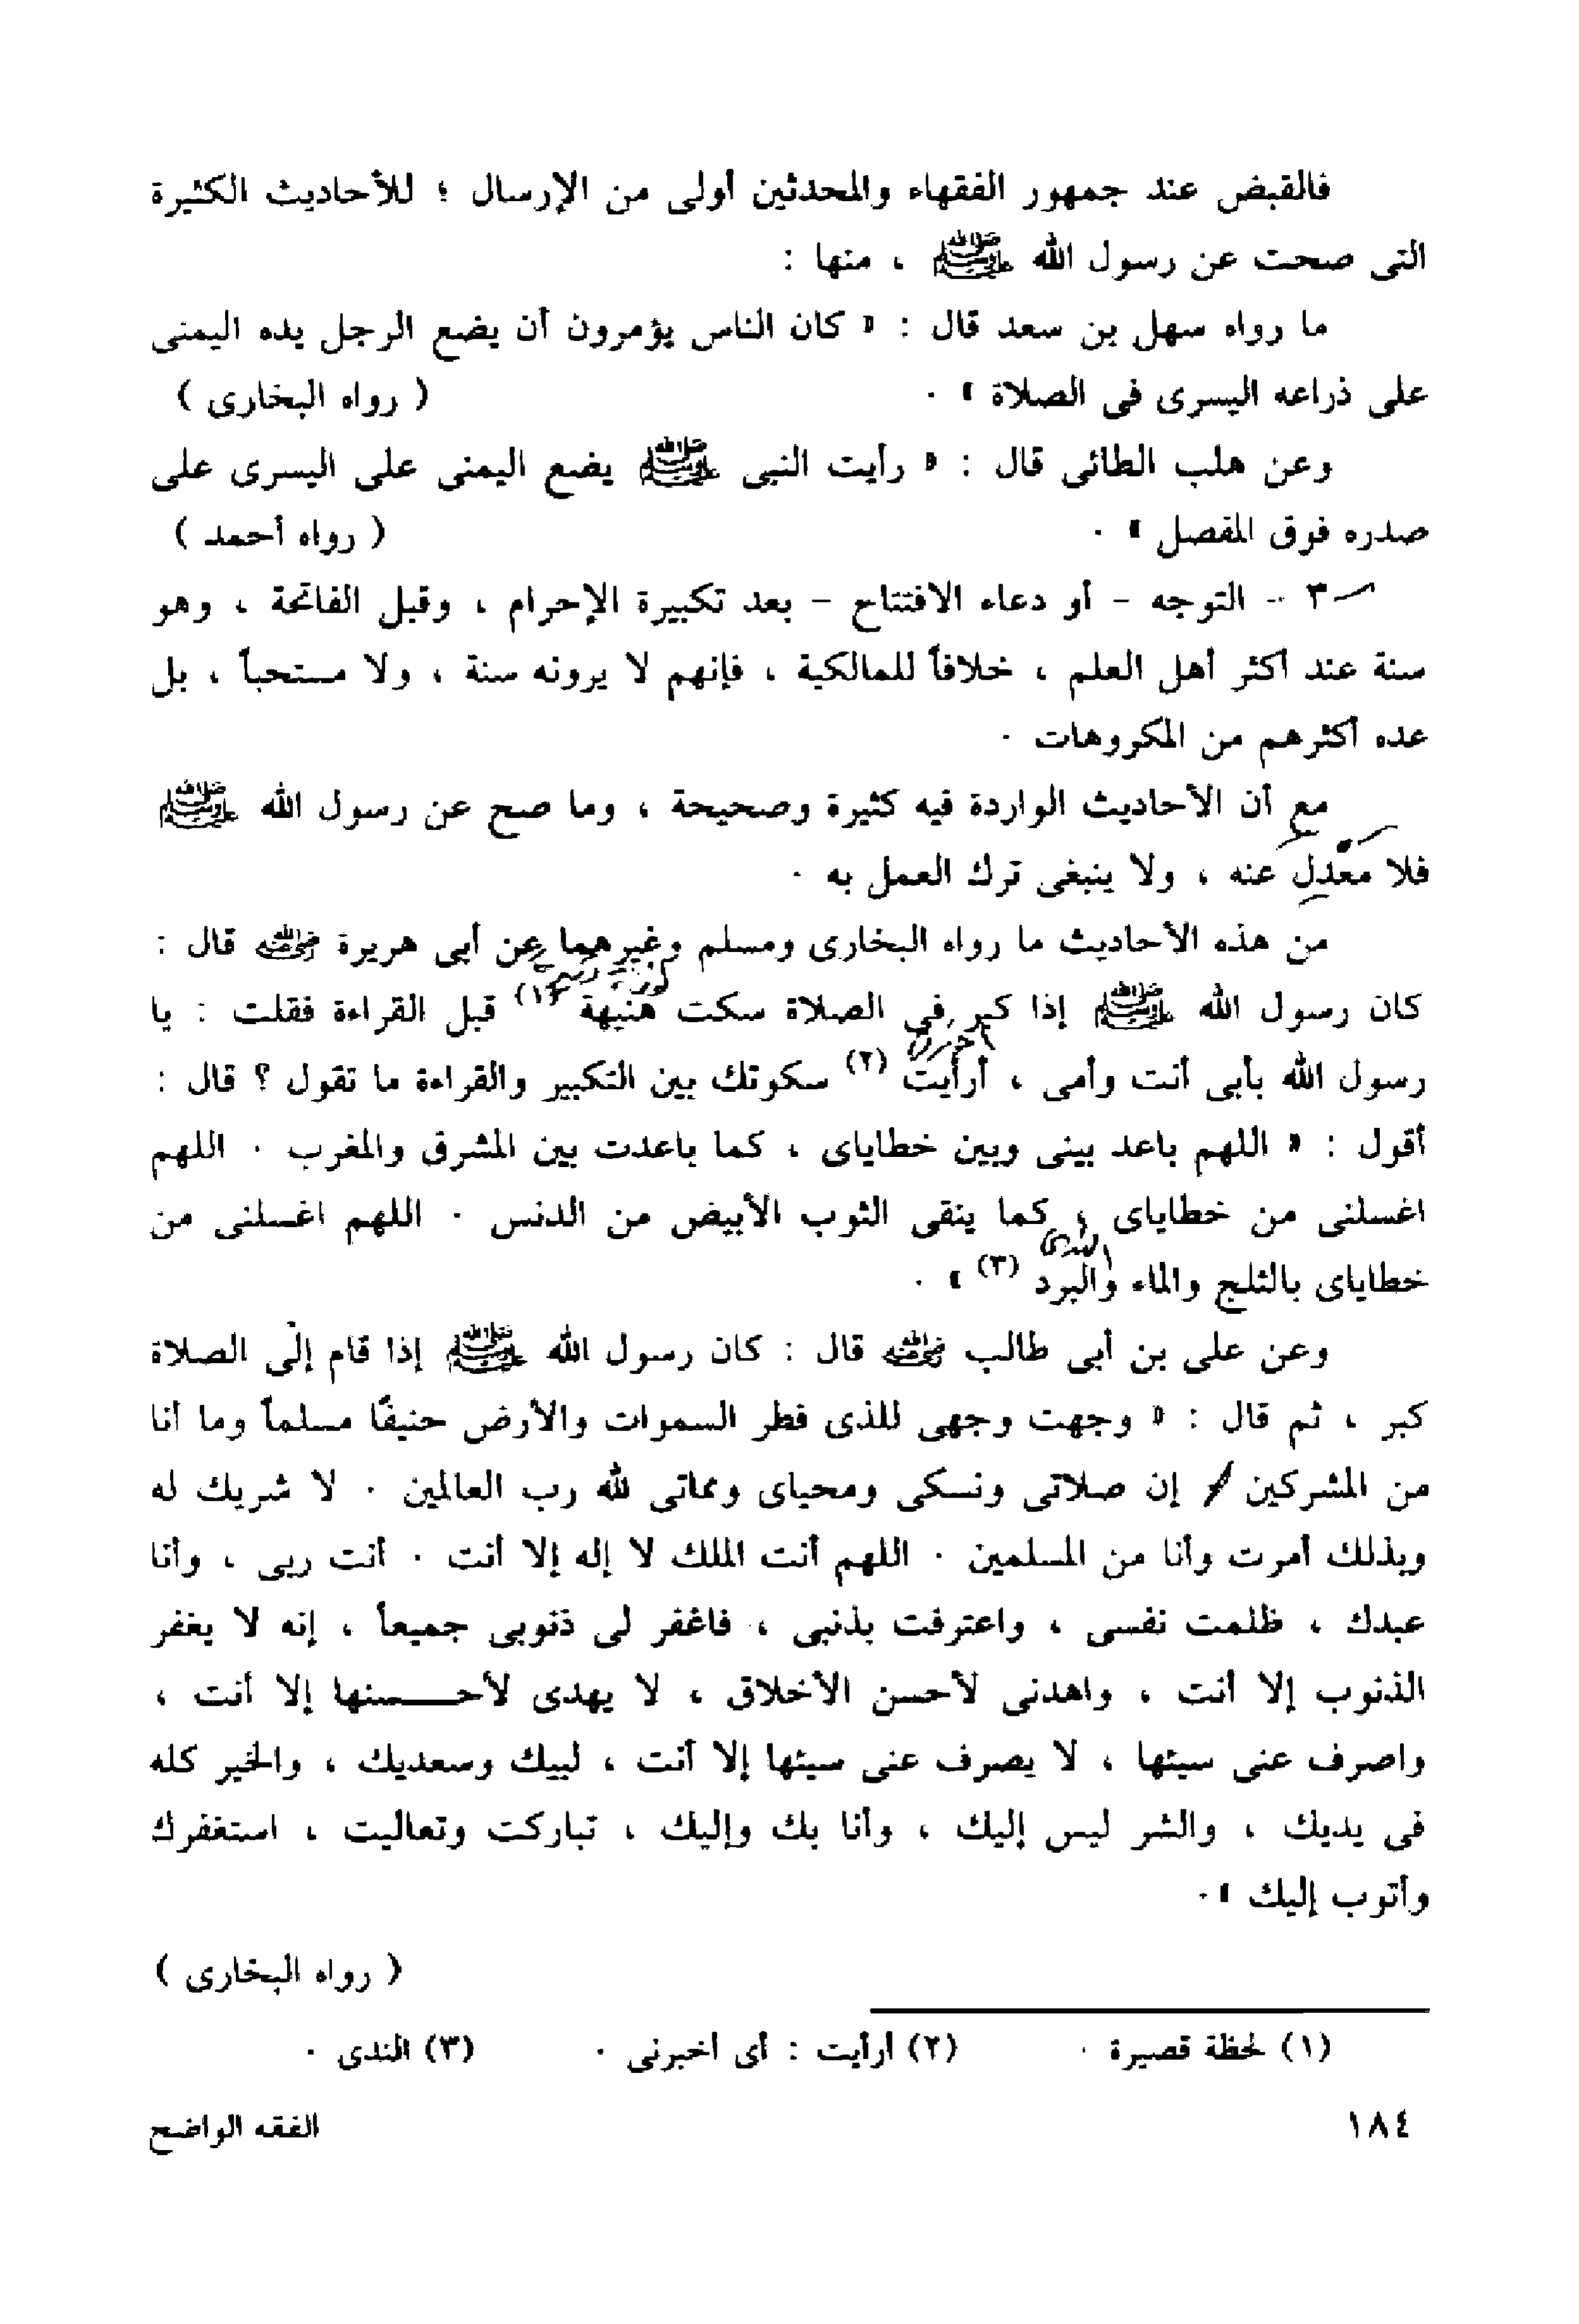 فالقبض عند جمهور الفقهاء والمحدثين أولى من الإرسال ؛ للأحاديث الكثيرة
التى صحت عن رسول الله ﷺ ، منها :
ما رواه سهل بن سعد قال : « كان الناس يؤمرون أن يضع الرجل يده اليمنى
على ذراعه اليسرى فى الصلاة » . ( رواه البخارى )
وعن هلب الطائى قال : « رأيت النبى ﷺ يضع اليمنى على اليسرى على
صدره فوق المفصل » . ( رواه أحمد )
٣ - التوجه - أو دعاء الافتتاح - بعد تكبيرة الإحرام ، وقبل الفاتحة ، وهو
سنة عند أكثر أهل العلم ، خلافاً للمالكية ، فإنهم لا يرونه سنة ، ولا مستحباً ، بل
عده أكثرهم من المكروهات .
مع أن الأحاديث الواردة فيه كثيرة وصحيحة ، وما صح عن رسول الله ﷺ
فلا معدل عنه ، ولا ينبغى ترك العمل به .
من هذه الأحاديث ما رواه البخارى ومسلم وغيرهما عن أبى هريرة رضي الله عنه قال :
كان رسول الله ﷺ إذا كبر فى الصلاة سكت هنيهة (١) قبل القراءة فقلت : يا
رسول الله بأبى أنت وأمى ، أرأيت (٢) سكوتك بين التكبير والقراءة ما تقول ؟ قال :
أقول : « اللهم باعد بينى وبين خطاياى ، كما باعدت بين المشرق والمغرب . اللهم
اغسلنى من خطاياى ، كما ينقى الثوب الأبيض من الدنس . اللهم اغسلنى من
خطاياى بالثلج والماء والبرد (٣) » .
وعن على بن أبى طالب رضي الله عنه قال : كان رسول الله ﷺ إذا قام إلى الصلاة
كبر ، ثم قال : « وجهت وجهى للذى فطر السموات والأرض حنيفًا مسلماً وما أنا
من المشركين / إن صلاتى ونسكى ومحياى ومماتى لله رب العالمين . لا شريك له
وبذلك أمرت وأنا من المسلمين . اللهم أنت الملك لا إله إلا أنت . أنت ربى ، وأنا
عبدك ، ظلمت نفسى ، واعترفت بذنبى ، فاغفر لى ذنوبى جميعاً ، إنه لا يغفر
الذنوب إلا أنت ، واهدنى لأحسن الأخلاق ، لا يهدى لأحسنها إلا أنت ،
واصرف عنى سيئها ، لا يصرف عنى سيئها إلا أنت ، لبيك وسعديك ، والخير كله
فى يديك ، والشر ليس إليك ، وأنا بك وإليك ، تباركت وتعاليت ، استغفرك
وأتوب إليك » .
( رواه البخارى )
(١) لحظة قصيرة . (٢) أرأيت : أى أخبرنى . (٣) الندى .
١٨٤ الفقه الواضح